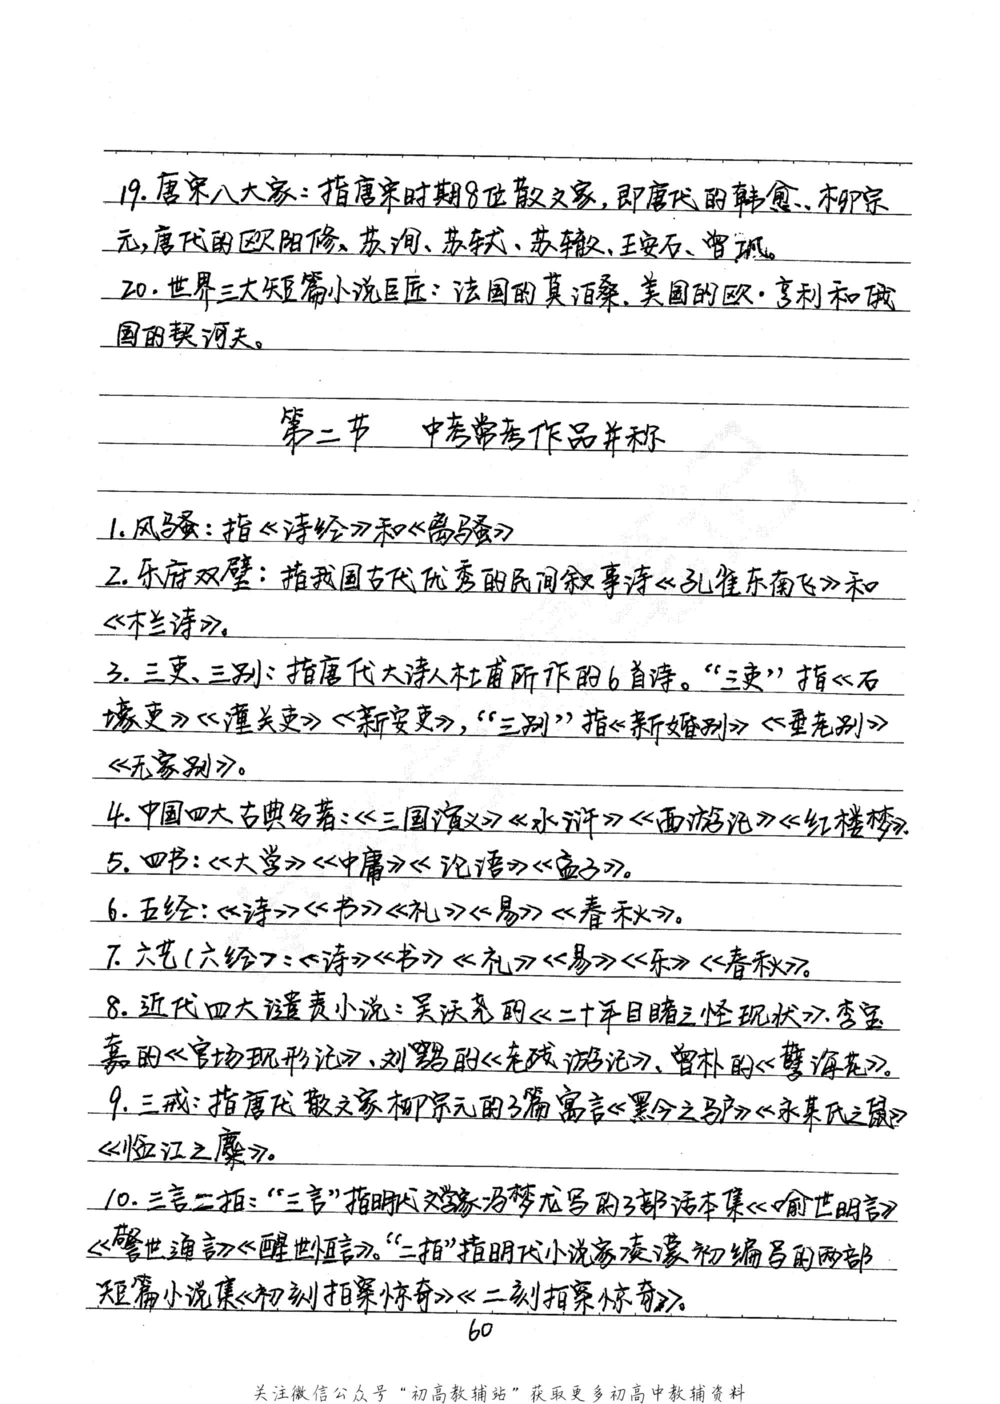 19.唐宋八大家：指唐宋时期8位散文家，即唐代的韩愈、柳宗
元，唐代的欧阳修、苏洵、苏轼、苏辙、王安石、曾巩。
20.世界三大短篇小说巨匠：法国的莫泊桑、美国的欧·亨利和俄
国的契诃夫。
第二节 中考常考作品并称
1.风骚：指《诗经》和《离骚》
2.乐府双璧：指我国古代优秀的民间叙事诗《孔雀东南飞》和
《木兰诗》。
3.三吏、三别：指唐代大诗人杜甫所作的6首诗。“三吏”指《石
壕吏》《潼关吏》《新安吏》，“三别”指《新婚别》《垂老别》
《无家别》。
4.中国四大古典名著：《三国演义》《水浒》《西游记》《红楼梦》.
5.四书：《大学》《中庸》《论语》《孟子》。
6.五经：《诗》《书》《礼》《易》《春秋》。
7.六艺(六经)：《诗》《书》《礼》《易》《乐》《春秋》。
8.近代四大谴责小说：吴沃尧的《二十年目睹之怪现状》.李宝
嘉的《官场现形记》、刘鹗的《老残游记》、曾朴的《孽海花》。
9.三戒：指唐代散文家柳宗元的3篇寓言《黔之驴》《永某氏之鼠》
《临江之麋》。
10.三言二拍：“三言”指明代文学家冯梦龙写的3部话本集《喻世明言》
《警世通言》《醒世恒言》。“二拍”指明代小说家凌濛初编写的两部
短篇小说集《初刻拍案惊奇》《二刻拍案惊奇》。
60
关注微信公众号“初高教辅站”获取更多初高中教辅资料